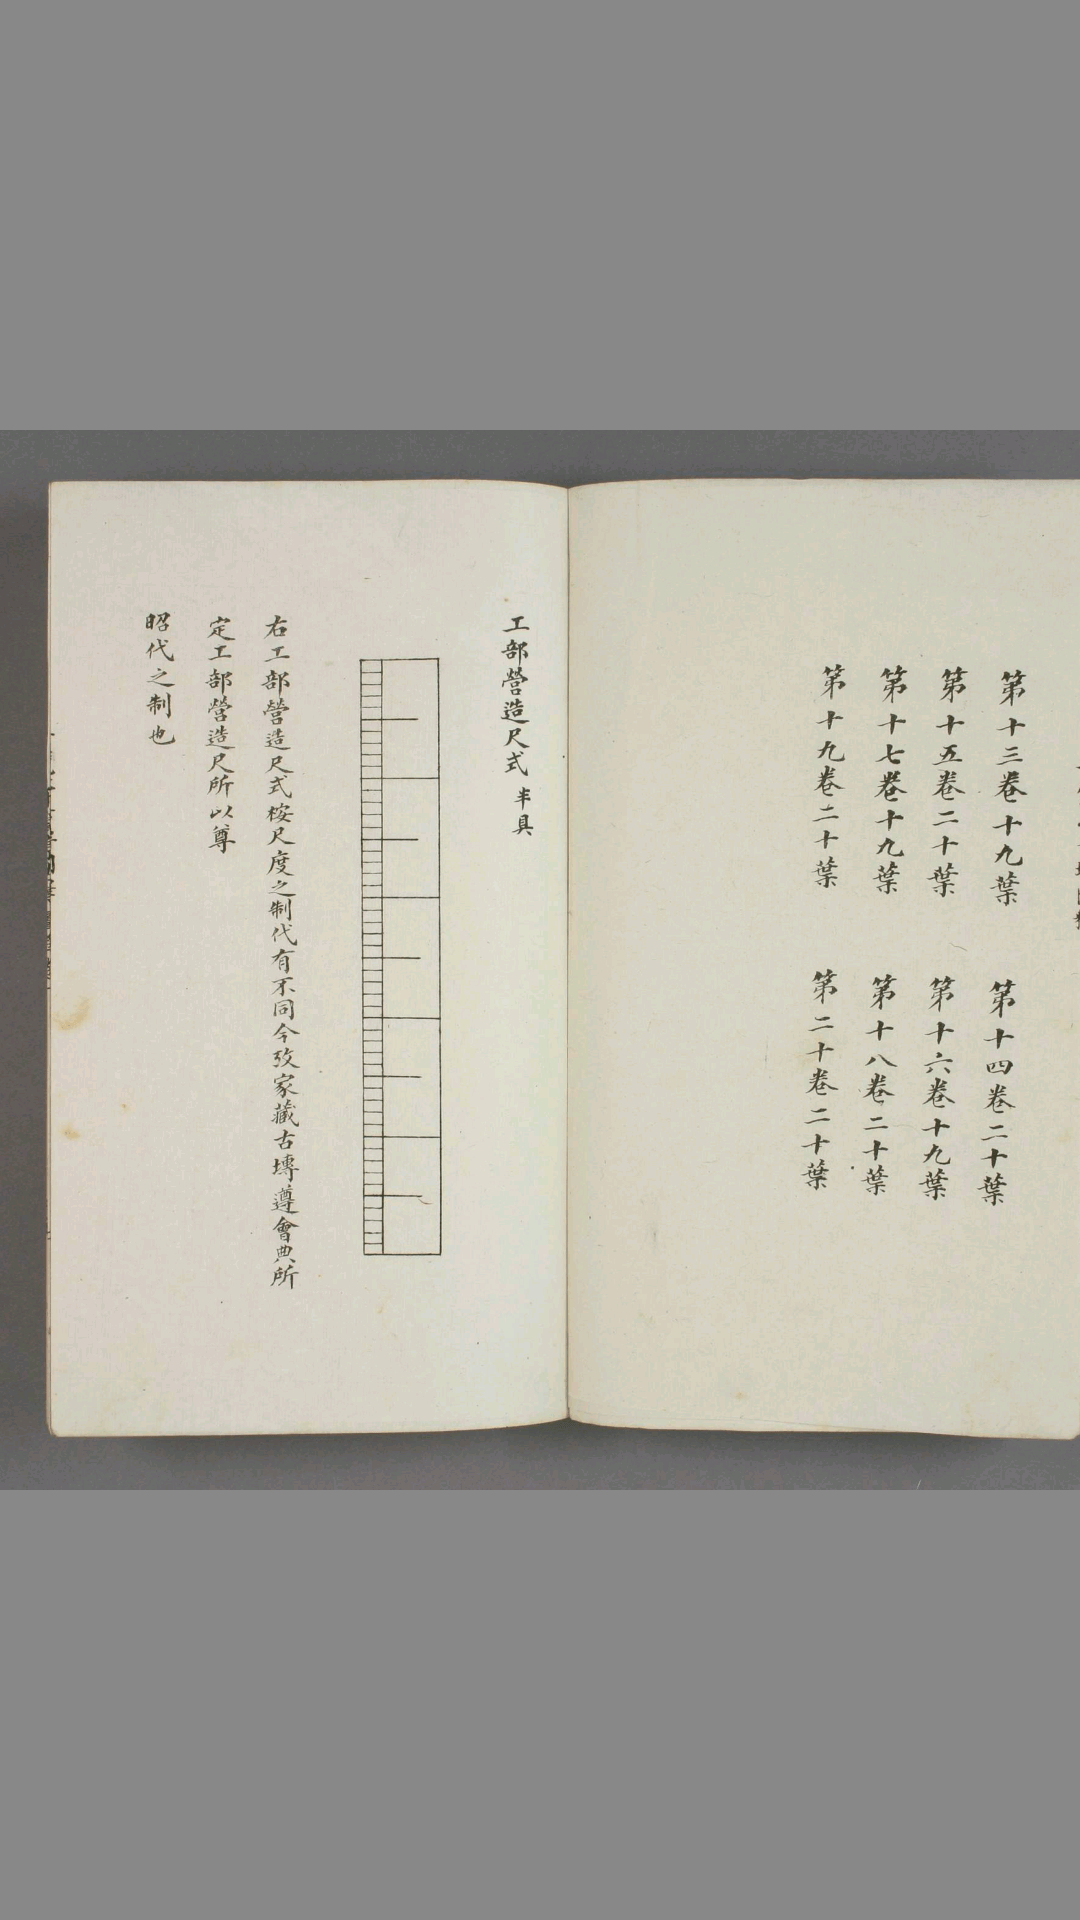 第十三卷十九葉
第十四卷二十葉
第十五卷二十葉
第十六卷十九葉
第十七卷十九葉
第十八卷二十葉
第十九卷二十葉
第二十卷二十葉
工部營造尺式半具
右工部營造尺式桉尺度之制代有不同今攷家藏古塼遵會典所
定工部營造尺所以尊
昭代之制也